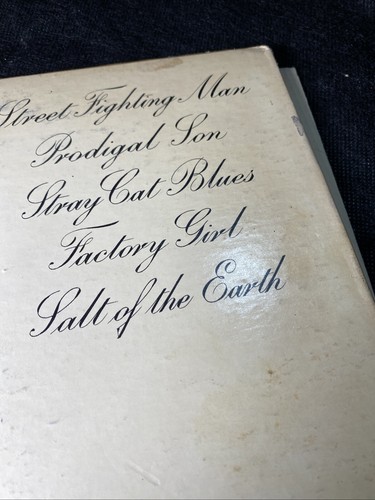 Street Fighting Man
Prodigal Son
Stray Cat Blues
Factory Girl
Salt of the Earth